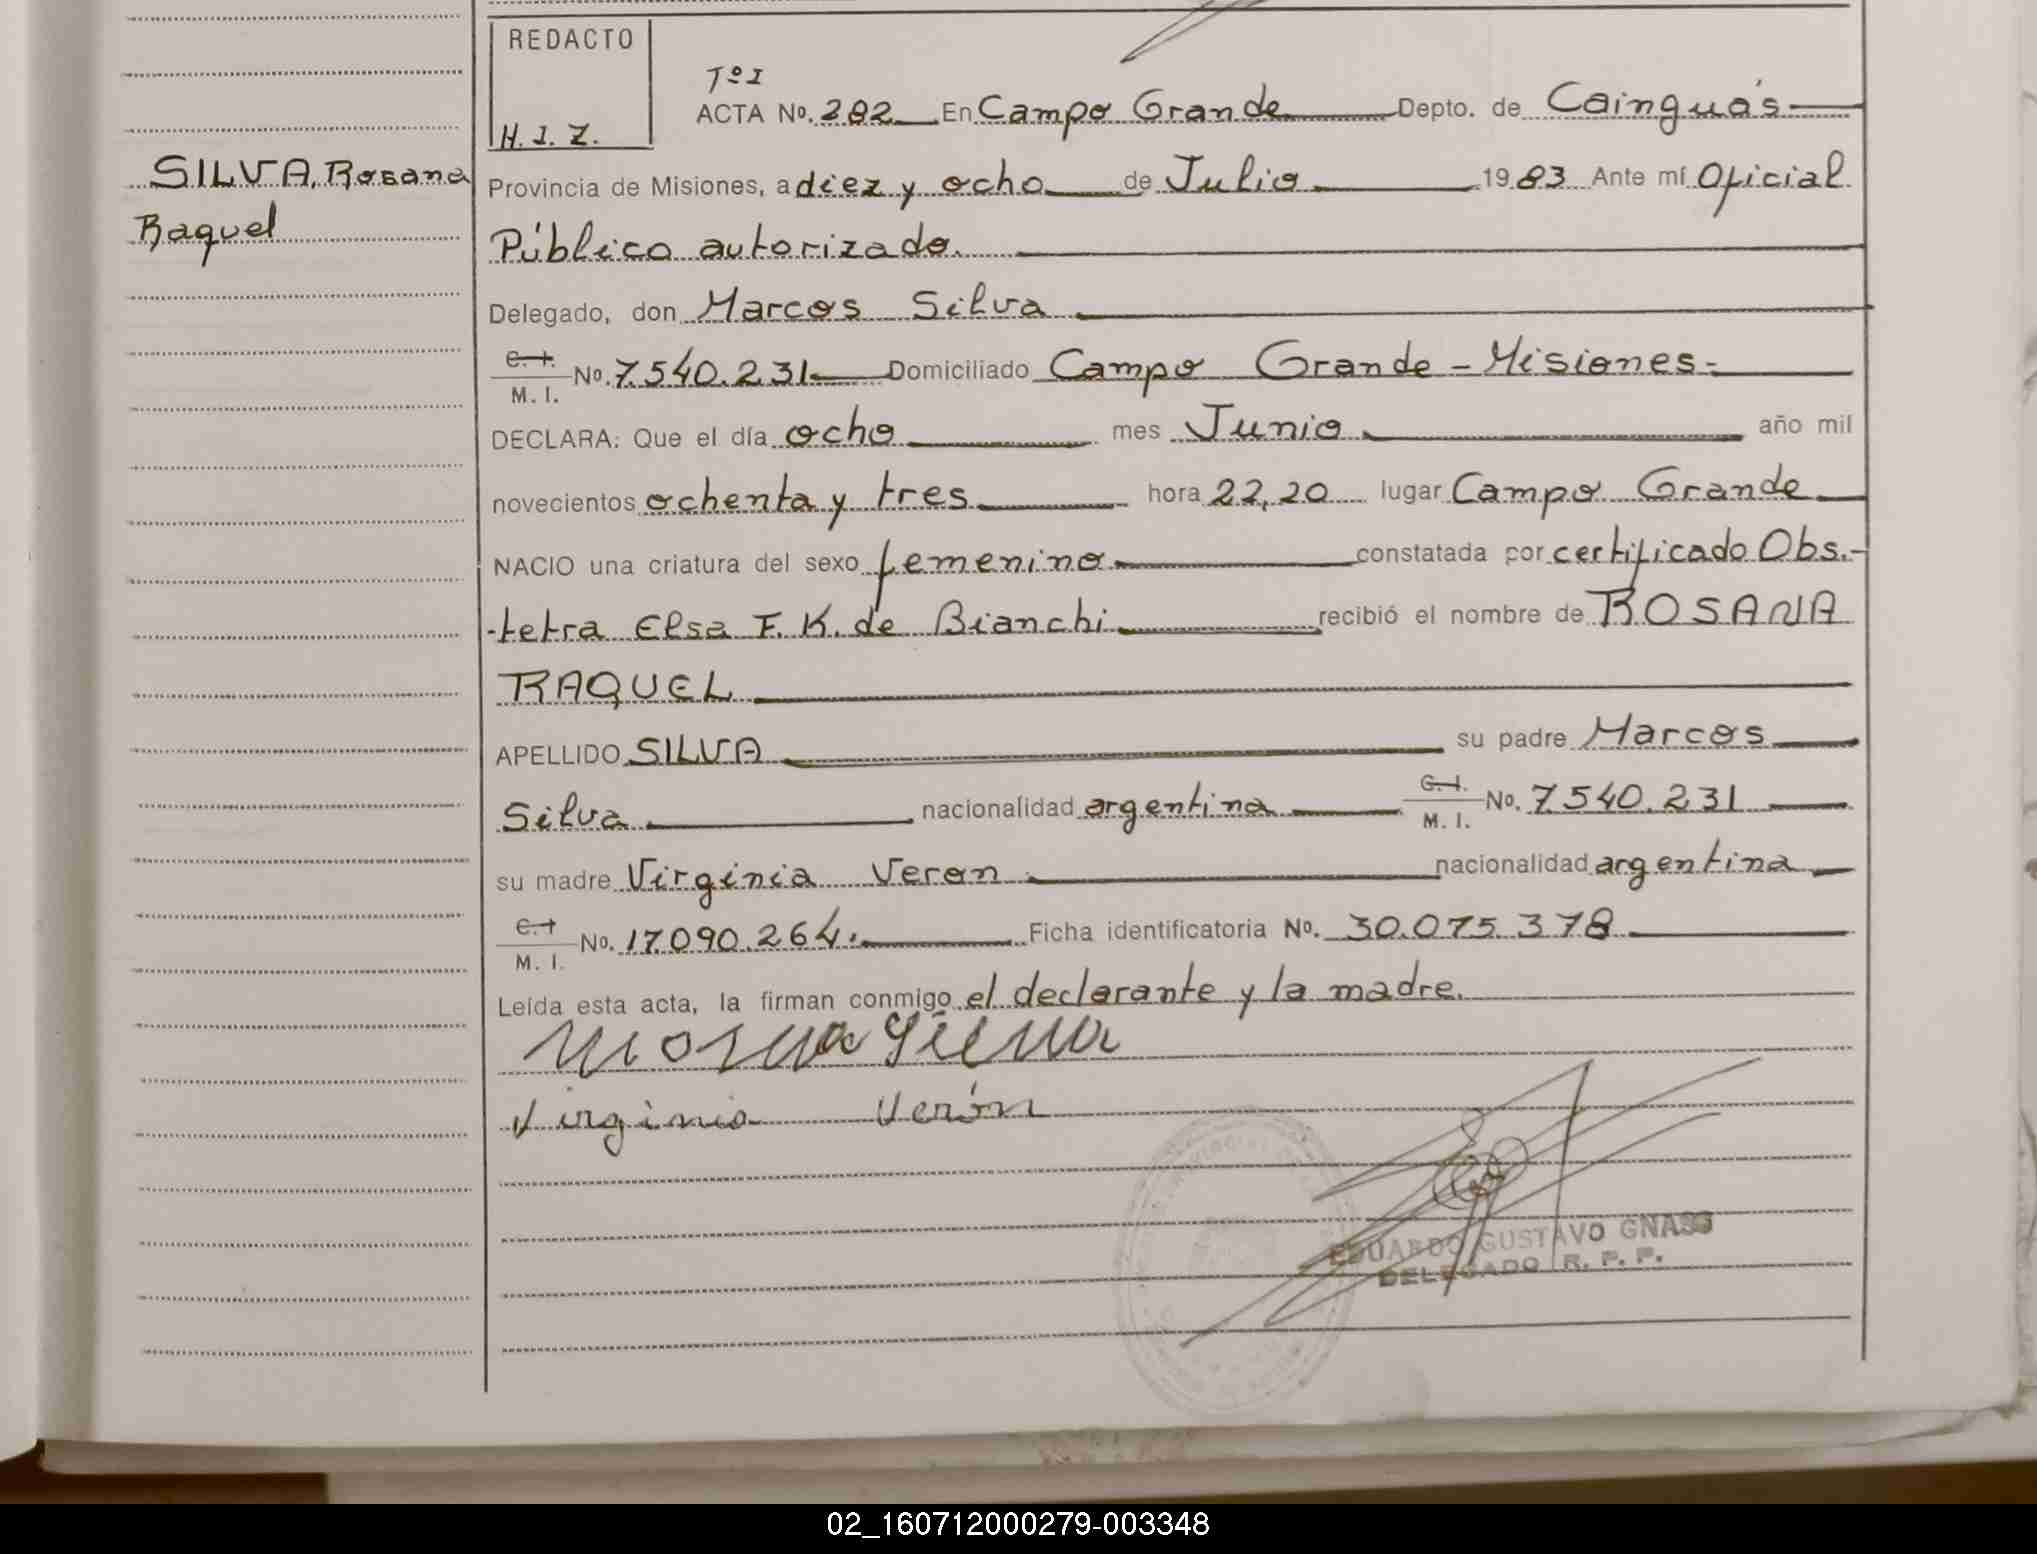 REDACTO
H. J. Z.
TºI
ACTA Nº. 282 En Campo Grande Depto. de Cainguás
SILVA, Rosana
Raquel
Provincia de Misiones, a diez y ocho de Julio 1983 Ante mí Oficial
Público autorizado.
Delegado, don Marcos Silva
C. I.
M. I. Nº. 7.540.231 Domiciliado Campo Grande - Misiones-
DECLARA: Que el día ocho mes Junio año mil
novecientos ochenta y tres hora 22,20 lugar Campo Grande
NACIO una criatura del sexo femenino constatada por certificado Obs.-
-tetra Elsa F. K. de Bianchi recibió el nombre de ROSANA
RAQUEL
APELLIDO SILVA su padre Marcos
Silva nacionalidad argentina C. I.
M. I. Nº. 7.540.231
su madre Virginia Veron nacionalidad argentina
C. I
M. I. Nº. 17.090.264. Ficha identificatoria Nº. 30.075.378
Leída esta acta, la firman conmigo el declarante y la madre.
Virginia Verón
EDUARDO GUSTAVO GNASS
DELEGADO R. P. P.
02_160712000279-003348